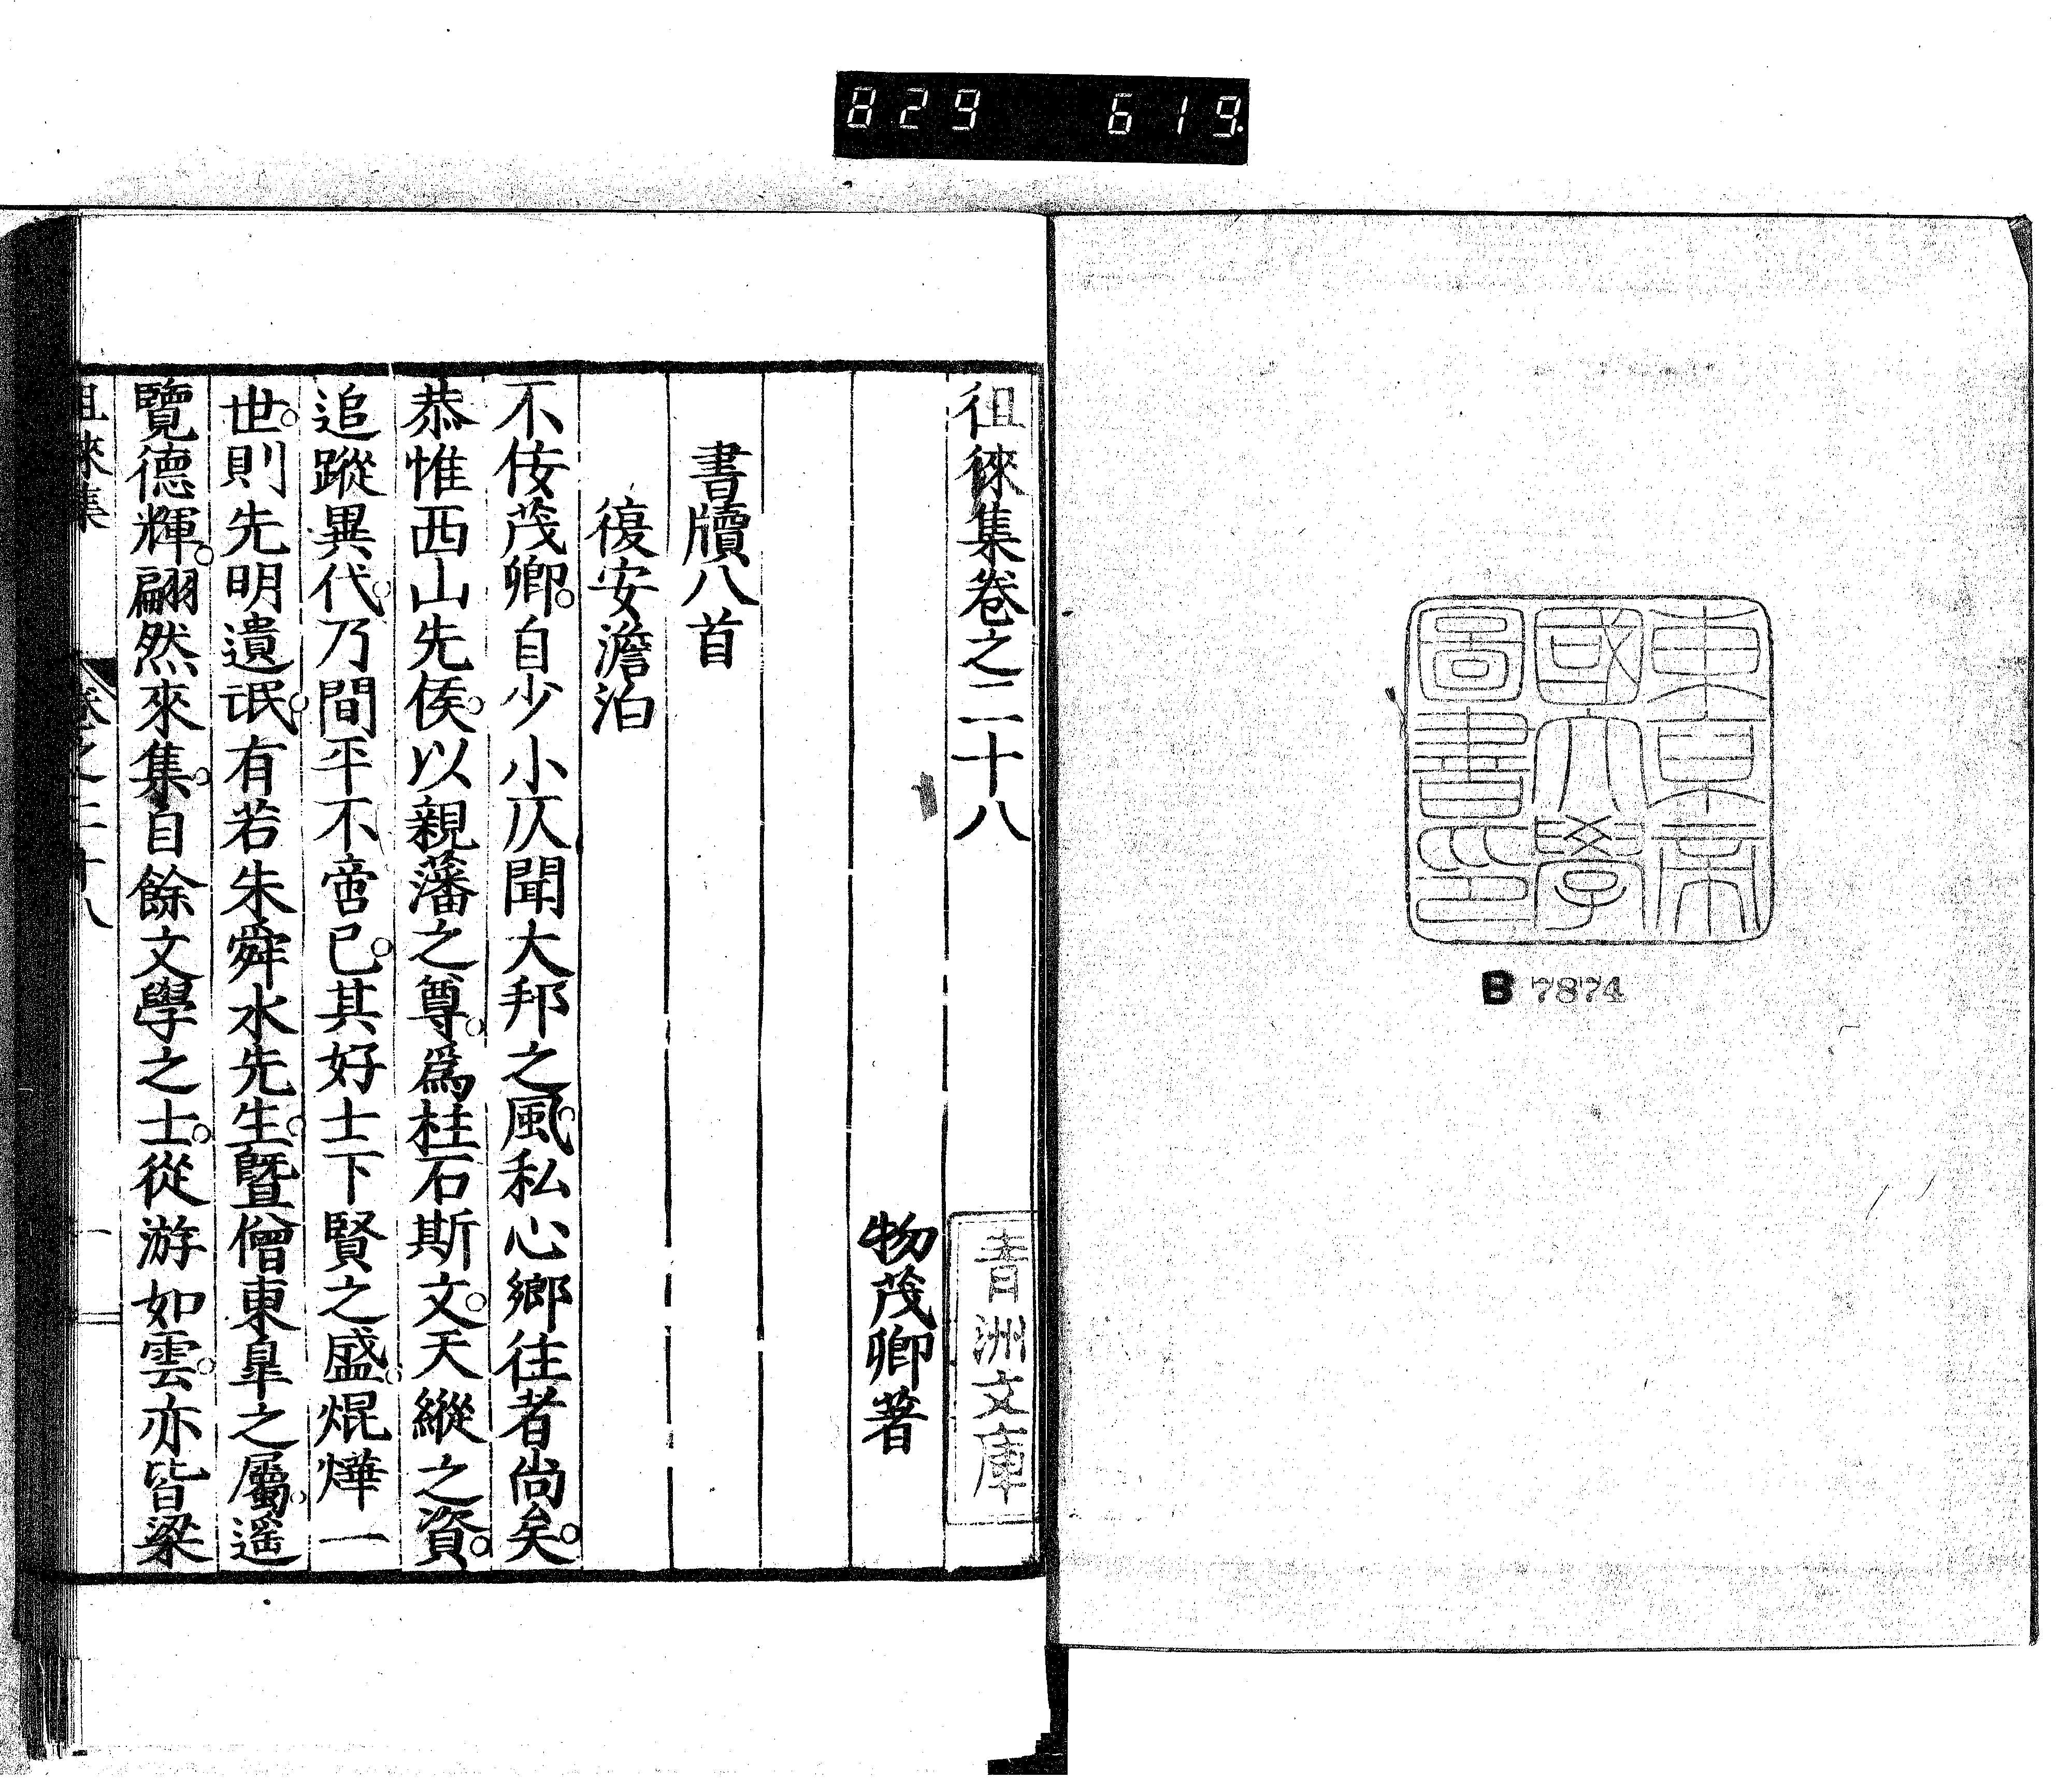 829 619.
東京帝
國大學
圖書印
B 7874
徂徠集卷之二十八
青洲文庫
物茂卿著
書牘八首
復安澹泊
不佞茂卿。自少小仄聞大邦之風。私心鄉往者尚矣。
恭惟西山先侯。以親藩之尊。爲柱石斯文。天縱之資。
追蹤異代。乃間平不啻已。其好士下賢之盛。焜燁一
世。則先明遺氓。有若朱舜水先生。暨僧東皐之屬。遥
覽德輝。翩然來集。自餘文學之士。從游如雲。亦皆梁
徂徠集 卷之二十八 一